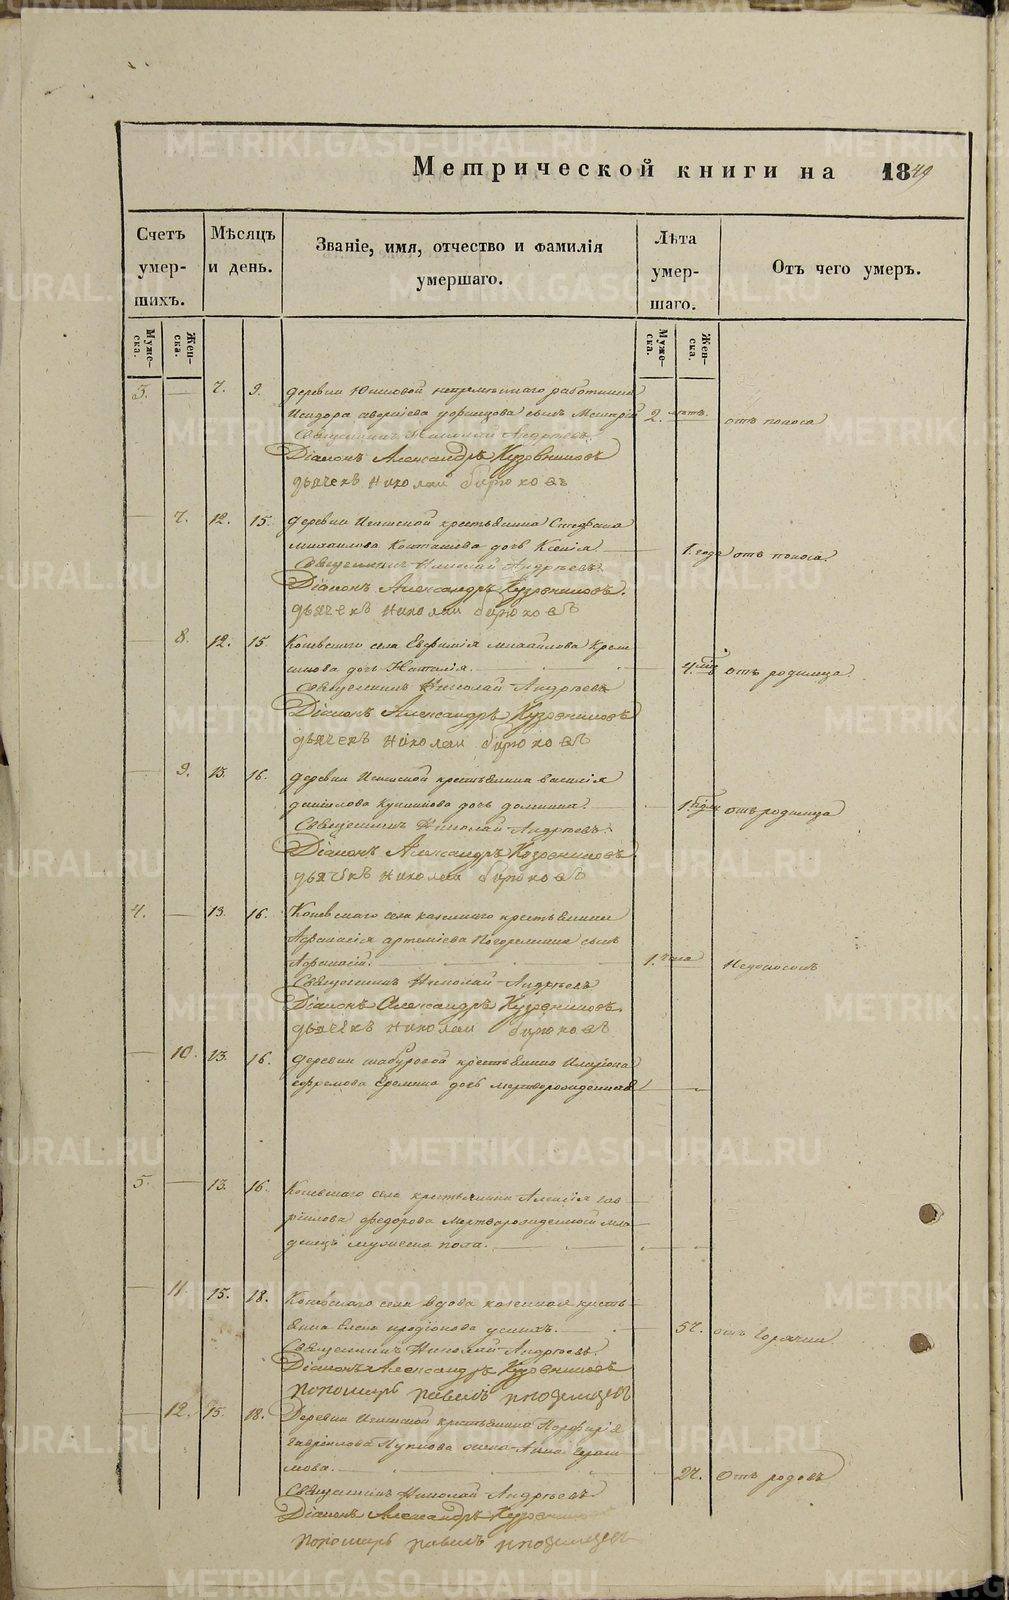 Метрической книги на 1849
Счетъ умер-шихъ.
Мѣсяцъ и день.
Званіе, имя, отчество и фамилія умершаго.
Лѣта умер-шаго.
Отъ чего умеръ.
Муже-ска. Жен-ска. Муже-ска. Жен-ска.
3. — 7. 9. деревни Юшковой непремѣннаго работника
Исидора сынъ Дмитрій 2. лѣтъ. отъ поноса
Священникъ Николай Андреевъ
Діаконъ Александръ Кузовниковъ
дьячекъ Николай бирюковъ
— 7. 12. 15. деревни крестьянина Стефана
михаилова дочь Ксенія 1. года отъ поноса.
Священникъ Николай Андреевъ.
Діаконъ Александръ Кузовниковъ.
дьячекъ Николай бирюковъ
— 8. 12. 15. Коневскаго села Евфимія михаилова
дочь Наталія. 4. отъ родимца.
Священникъ Николай Андреевъ
Діаконъ Александръ Кузовниковъ
дьячекъ Николай бирюковъ
— 9. 13. 16. деревни крестьянина василія
даніилова дочь домнина. 1. отъ родимца
Священникъ Николай Андреевъ.
Діаконъ Александръ Кузовниковъ
дьячекъ Николай бирюковъ
4. — 13. 16. Коневскаго села казеннаго крестьянина
Афанасія артеміева сынъ
Афанасій. 1. часа Недоносокъ
Священникъ Николай Андреевъ
Діаконъ Александръ Кузовниковъ.
дьячекъ Николай бирюковъ
— 10. 13. 16. деревни шабуровой крестьянина Иларіона
ефремова Еремина дочь мертворожденная
5. — 13. 16. Коневскаго села крестьянина Алексія гав-
ріилова федорова мертворожденный мла-
денецъ мужеска пола.
— 11. 15. 18. Коневскаго села вдова казенная кресть-
янка Елена иродіонова 57. отъ горячки
Священникъ Николай Андреевъ.
Діаконъ Александръ Кузовниковъ
Пономарь павелъ
— 12. 15. 18. Деревни крестьянина Порфирія
гавріилова жена Анна
27. Отъ родовъ
Священникъ Николай Андреевъ
Діаконъ Александръ Кузовниковъ
Пономарь павелъ
METRIKI.GASO-URAL.RU